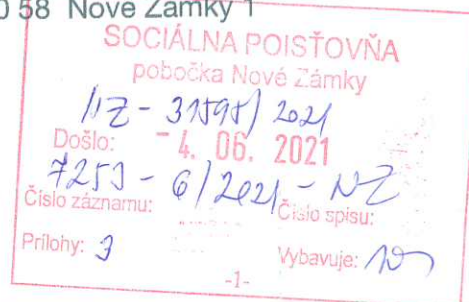 0 58 Nové Zámky 1
SOCIÁLNA POISŤOVŇA
pobočka Nové Zámky
2021
Došlo: -4. 06. 2021
- 6/2021 - NZ
Číslo záznamu: Číslo spisu:
Prílohy: Vybavuje:
-1-